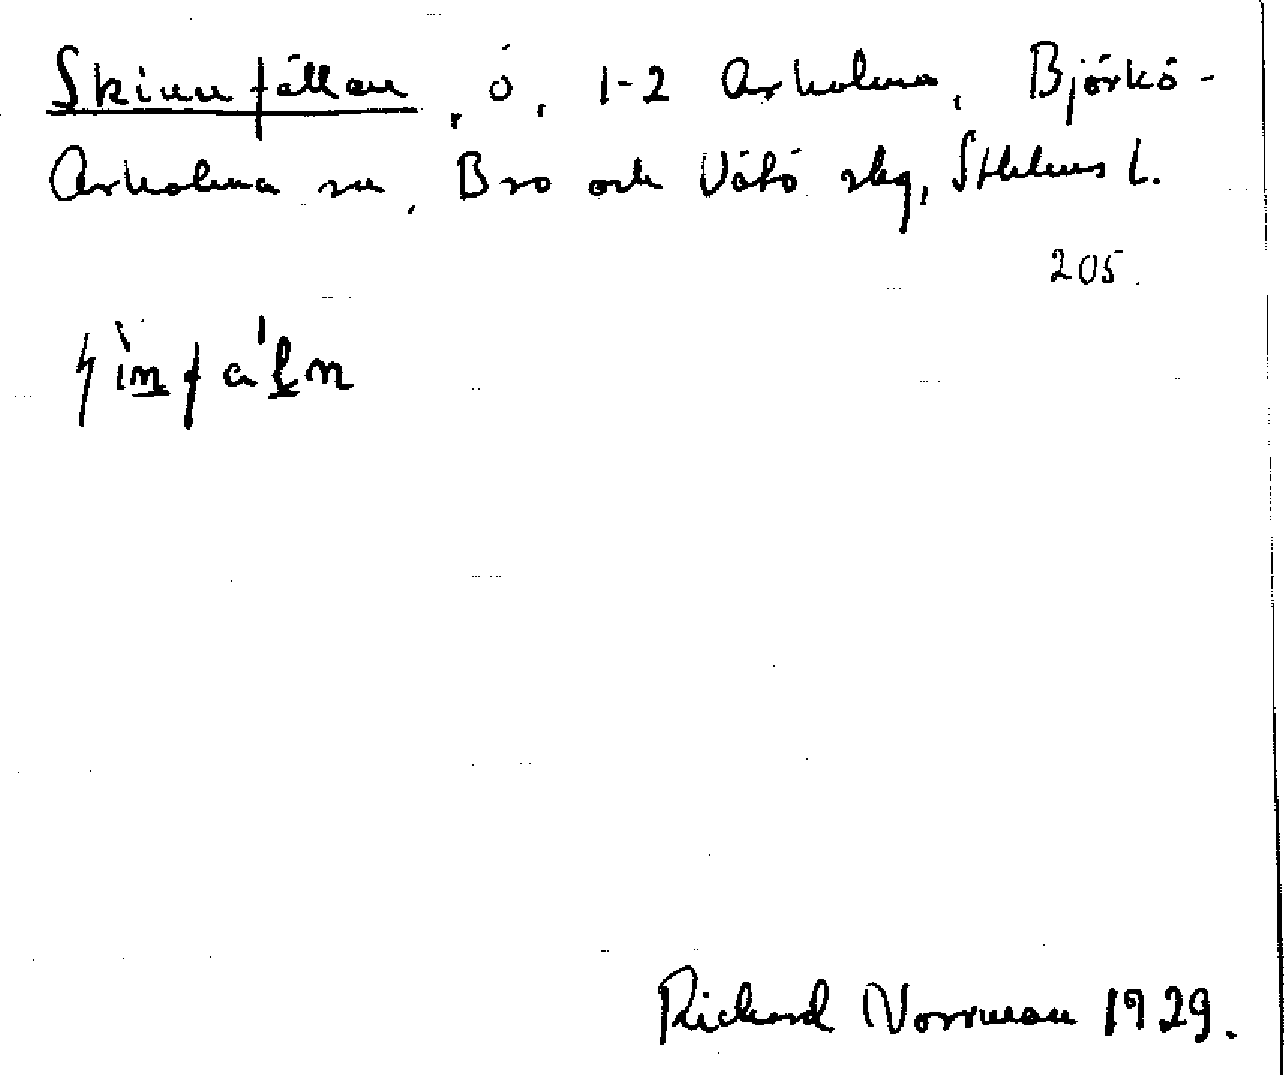 Skinnfällan, ö, 1-2 Arholma, Björkö-
Arholma sn, Bro och Vätö skg, Sthlms l.
205.
Richard Norrman 1929.